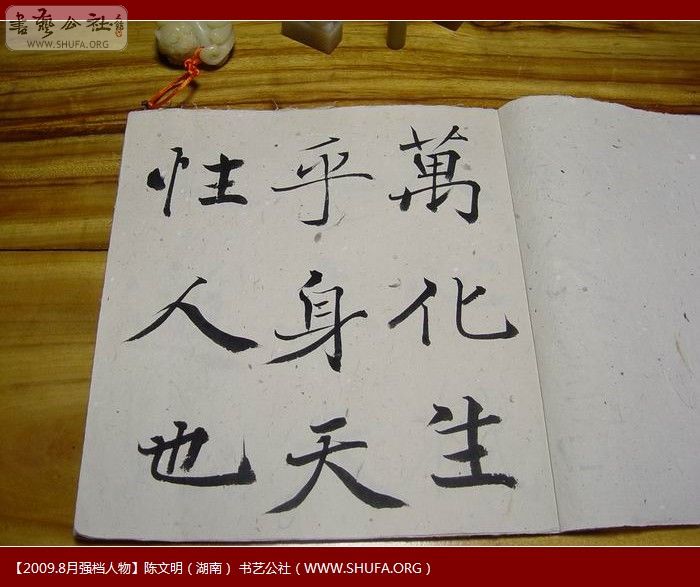 書藝公社
WWW.SHUFA.ORG
萬化生
乎身天
性人也
【2009.8月强档人物】陈文明（湖南） 书艺公社（WWW.SHUFA.ORG）